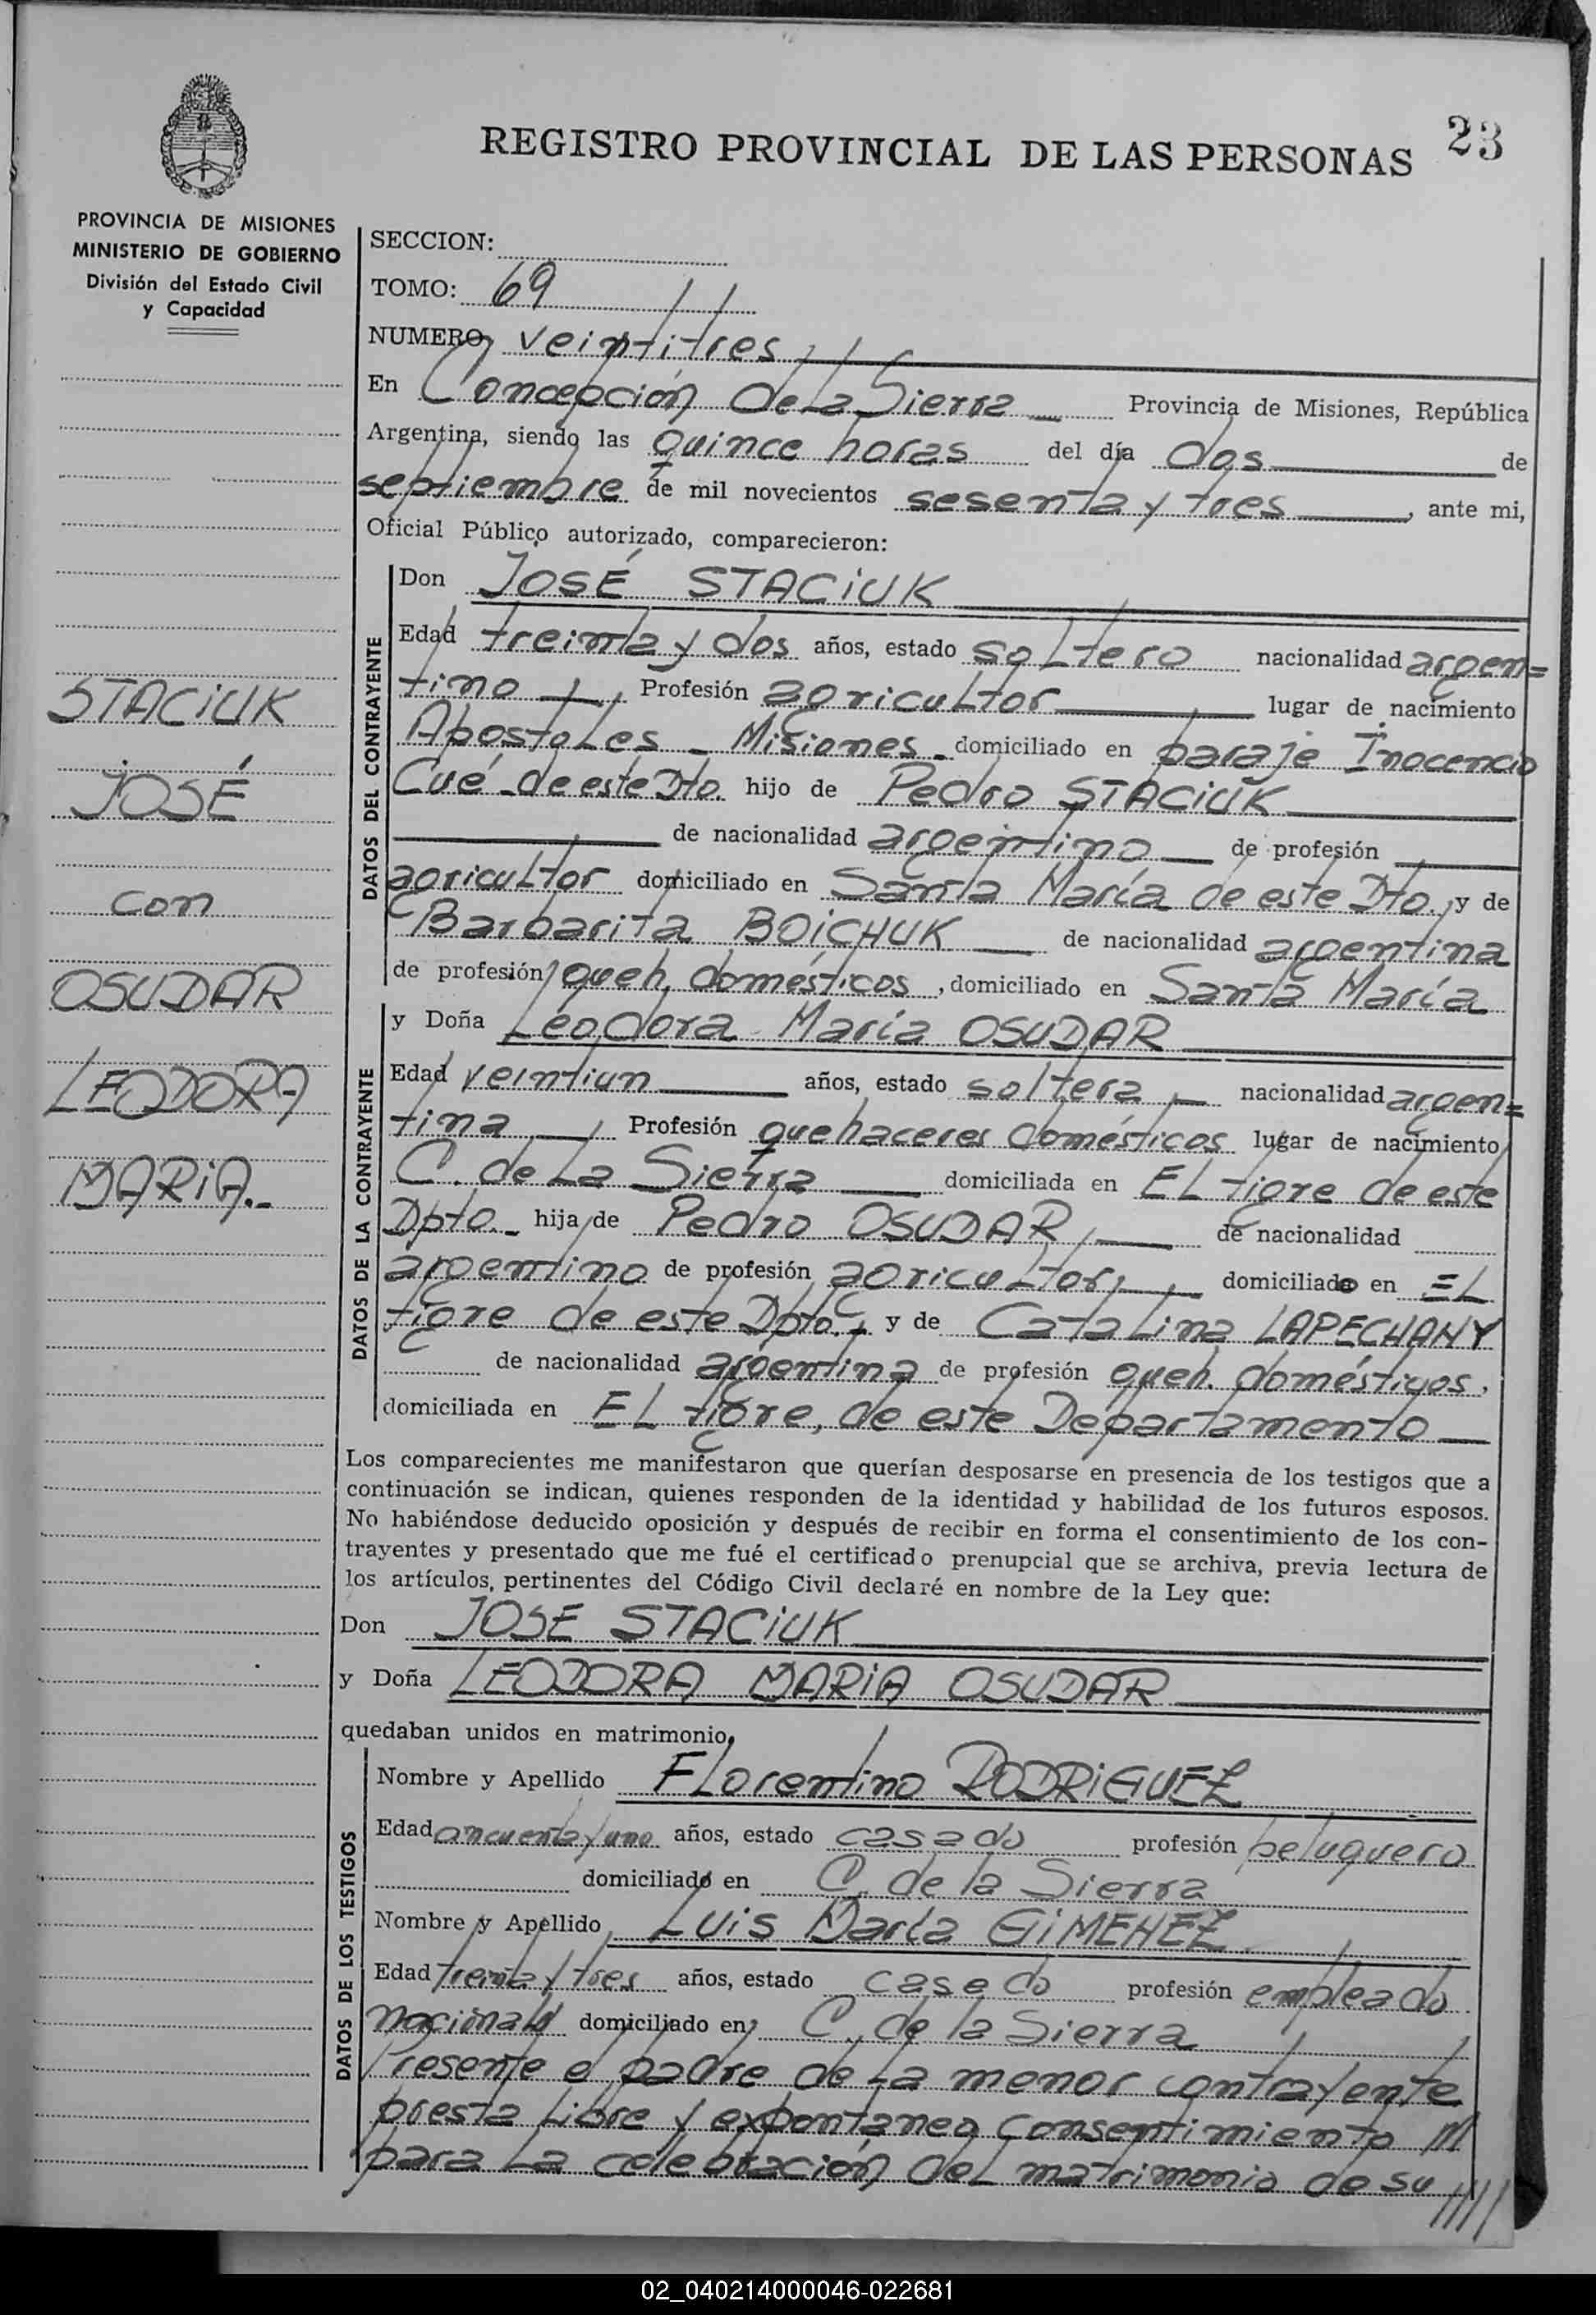 23
REGISTRO PROVINCIAL DE LAS PERSONAS
PROVINCIA DE MISIONES
MINISTERIO DE GOBIERNO
División del Estado Civil
y Capacidad
STACIUK
JOSÉ
con
OSUDAR
LEODORA
MARIA.-
SECCION:
TOMO: 69
NUMERO veintitres
En Concepción de La Sierra Provincia de Misiones, República
Argentina, siendo las quince horas del día dos de
septiembre de mil novecientos sesenta y tres, ante mi,
Oficial Público autorizado, comparecieron:
DATOS DEL CONTRAYENTE
Don JOSÉ STACIUK
Edad treinta y dos años, estado soltero nacionalidad argen=
tino, Profesión agricultor lugar de nacimiento
Apostoles - Misiones - domiciliado en paraje Inocencio
Cué - de este Dto. hijo de Pedro STACIUK
de nacionalidad argentino de profesión
agricultor domiciliado en Santa María de este Dto. y de
Barbarita BOICHUK de nacionalidad argentina
de profesión queh. domésticos, domiciliado en Santa María
DATOS DE LA CONTRAYENTE
y Doña Leodora María OSUDAR
Edad veintiun años, estado soltera nacionalidad argen=
tina, Profesión quehaceres domésticos lugar de nacimiento
C. de La Sierra domiciliada en EL tigre de este
Dpto. - hija de Pedro OSUDAR, de nacionalidad
argentino de profesión agricultor, domiciliado en EL
tigre de este Dpto. - y de Catalina LAPECHANY
de nacionalidad argentina de profesión queh. domésticos,
domiciliada en EL tigre, de este Departamento
Los comparecientes me manifestaron que querían desposarse en presencia de los testigos que a
continuación se indican, quienes responden de la identidad y habilidad de los futuros esposos.
No habiéndose deducido oposición y después de recibir en forma el consentimiento de los con-
trayentes y presentado que me fué el certificado prenupcial que se archiva, previa lectura de
los artículos, pertinentes del Código Civil declaré en nombre de la Ley que:
Don JOSE STACIUK
y Doña LEODORA MARIA OSUDAR
quedaban unidos en matrimonio.
DATOS DE LOS TESTIGOS
Nombre y Apellido Florentino RODRIGUEZ
Edad cincuenta y uno años, estado casado profesión peluquero
domiciliado en C. de la Sierra
Nombre y Apellido Luis María GIMENEZ
Edad treinta y tres años, estado casado profesión empleado
nacional domiciliado en C. de la Sierra
Presente el padre de la menor contrayente
presta libre y expontaneo consentimiento ///
para la celebración del matrimonio de su ////
02_040214000046-022681